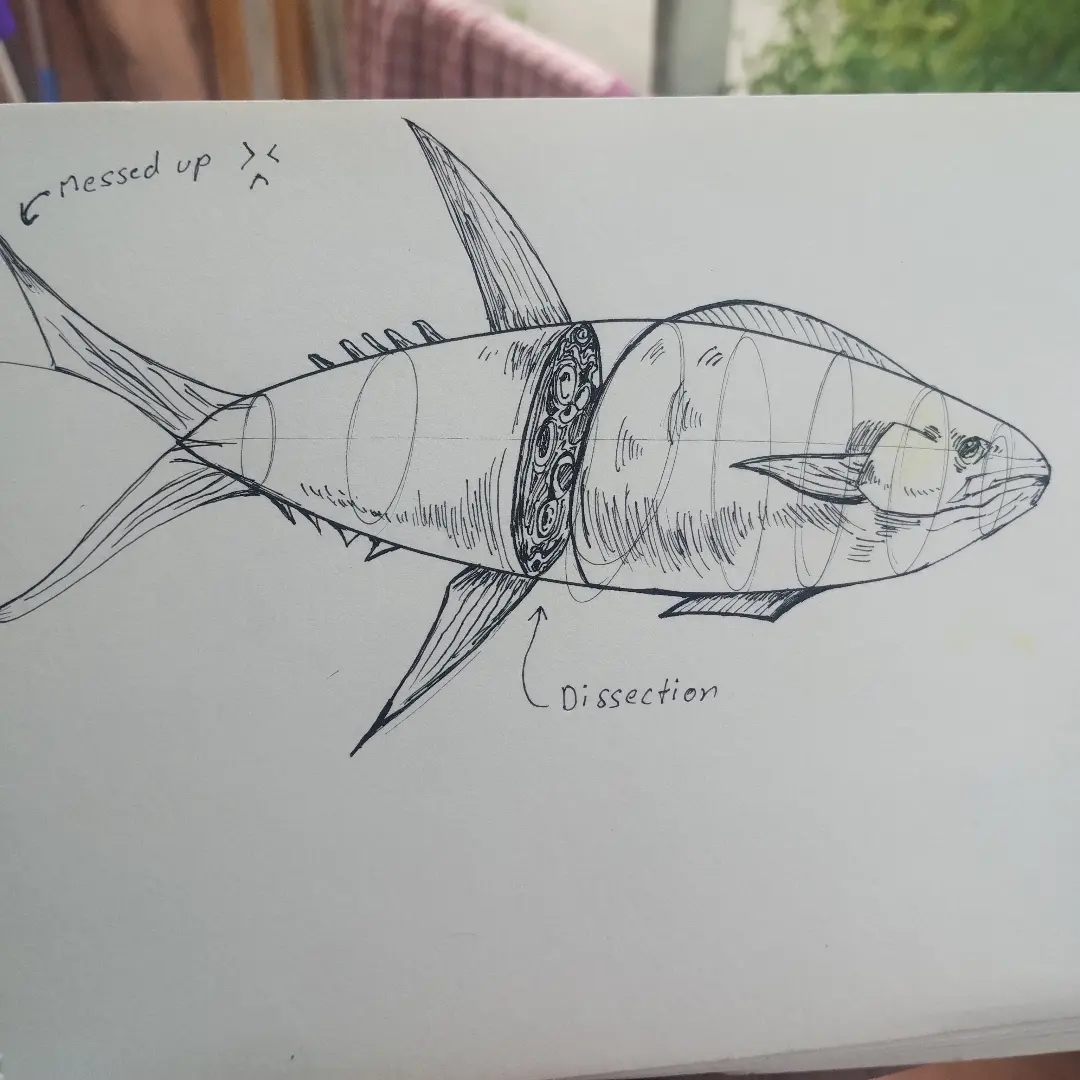 Messed up >^<
Dissection